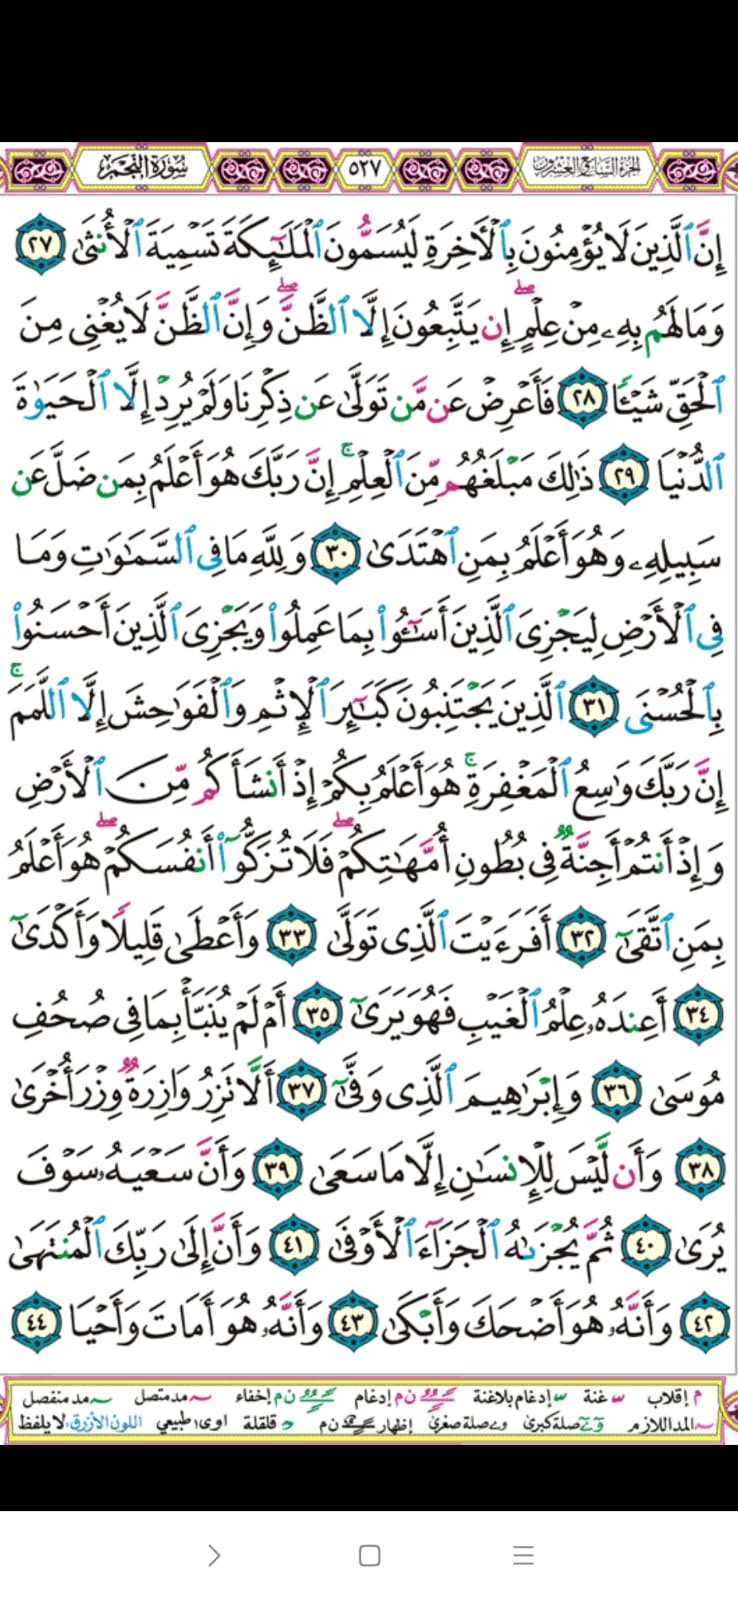 الجزء السابع والعشرون ٥٢٧ سورة النجم
إِنَّ ٱلَّذِينَ لَا يُؤْمِنُونَ بِٱلْأَخِرَةِ لَيُسَمُّونَ ٱلْمَلَٰٓئِكَةَ تَسْمِيَةَ ٱلْأُنثَىٰ ٢٧
وَمَا لَهُم بِهِۦ مِنْ عِلْمٍ ۖ إِن يَتَّبِعُونَ إِلَّا ٱلظَّنَّ ۖ وَإِنَّ ٱلظَّنَّ لَا يُغْنِى مِنَ
ٱلْحَقِّ شَيْـًٔا ٢٨ فَأَعْرِضْ عَن مَّن تَوَلَّىٰ عَن ذِكْرِنَا وَلَمْ يُرِدْ إِلَّا ٱلْحَيَوٰةَ
ٱلدُّنْيَا ٢٩ ذَٰلِكَ مَبْلَغُهُم مِّنَ ٱلْعِلْمِ ۚ إِنَّ رَبَّكَ هُوَ أَعْلَمُ بِمَن ضَلَّ عَن
سَبِيلِهِۦ وَهُوَ أَعْلَمُ بِمَنِ ٱهْتَدَىٰ ٣٠ وَلِلَّهِ مَا فِى ٱلسَّمَٰوَٰتِ وَمَا
فِى ٱلْأَرْضِ لِيَجْزِىَ ٱلَّذِينَ أَسَٰٓـُٔوا۟ بِمَا عَمِلُوا۟ وَيَجْزِىَ ٱلَّذِينَ أَحْسَنُوا۟
بِٱلْحُسْنَى ٣١ ٱلَّذِينَ يَجْتَنِبُونَ كَبَٰٓئِرَ ٱلْإِثْمِ وَٱلْفَوَٰحِشَ إِلَّا ٱللَّمَمَ ۚ
إِنَّ رَبَّكَ وَٰسِعُ ٱلْمَغْفِرَةِ ۚ هُوَ أَعْلَمُ بِكُمْ إِذْ أَنشَأَكُم مِّنَ ٱلْأَرْضِ
وَإِذْ أَنتُمْ أَجِنَّةٌ فِى بُطُونِ أُمَّهَٰتِكُمْ ۖ فَلَا تُزَكُّوٓا۟ أَنفُسَكُمْ ۖ هُوَ أَعْلَمُ
بِمَنِ ٱتَّقَىٰٓ ٣٢ أَفَرَءَيْتَ ٱلَّذِى تَوَلَّىٰ ٣٣ وَأَعْطَىٰ قَلِيلًا وَأَكْدَىٰٓ
٣٤ أَعِندَهُۥ عِلْمُ ٱلْغَيْبِ فَهُوَ يَرَىٰٓ ٣٥ أَمْ لَمْ يُنَبَّأْ بِمَا فِى صُحُفِ
مُوسَىٰ ٣٦ وَإِبْرَٰهِيمَ ٱلَّذِى وَفَّىٰٓ ٣٧ أَلَّا تَزِرُ وَازِرَةٌ وِزْرَ أُخْرَىٰ
٣٨ وَأَن لَّيْسَ لِلْإِنسَٰنِ إِلَّا مَا سَعَىٰ ٣٩ وَأَنَّ سَعْيَهُۥ سَوْفَ
يُرَىٰ ٤٠ ثُمَّ يُجْزَىٰهُ ٱلْجَزَآءَ ٱلْأَوْفَىٰ ٤١ وَأَنَّ إِلَىٰ رَبِّكَ ٱلْمُنتَهَىٰ
٤٢ وَأَنَّهُۥ هُوَ أَضْحَكَ وَأَبْكَىٰ ٤٣ وَأَنَّهُۥ هُوَ أَمَاتَ وَأَحْيَا ٤٤
م إقلاب غنة إدغام بلاغنة ن م إدغام ن م إخفاء مد متصل مد منفصل
المد اللازم صلة كبرى صلة صغرى إظهار ن م قلقلة اوى طبيعي اللون الأزرق: لا يلفظ